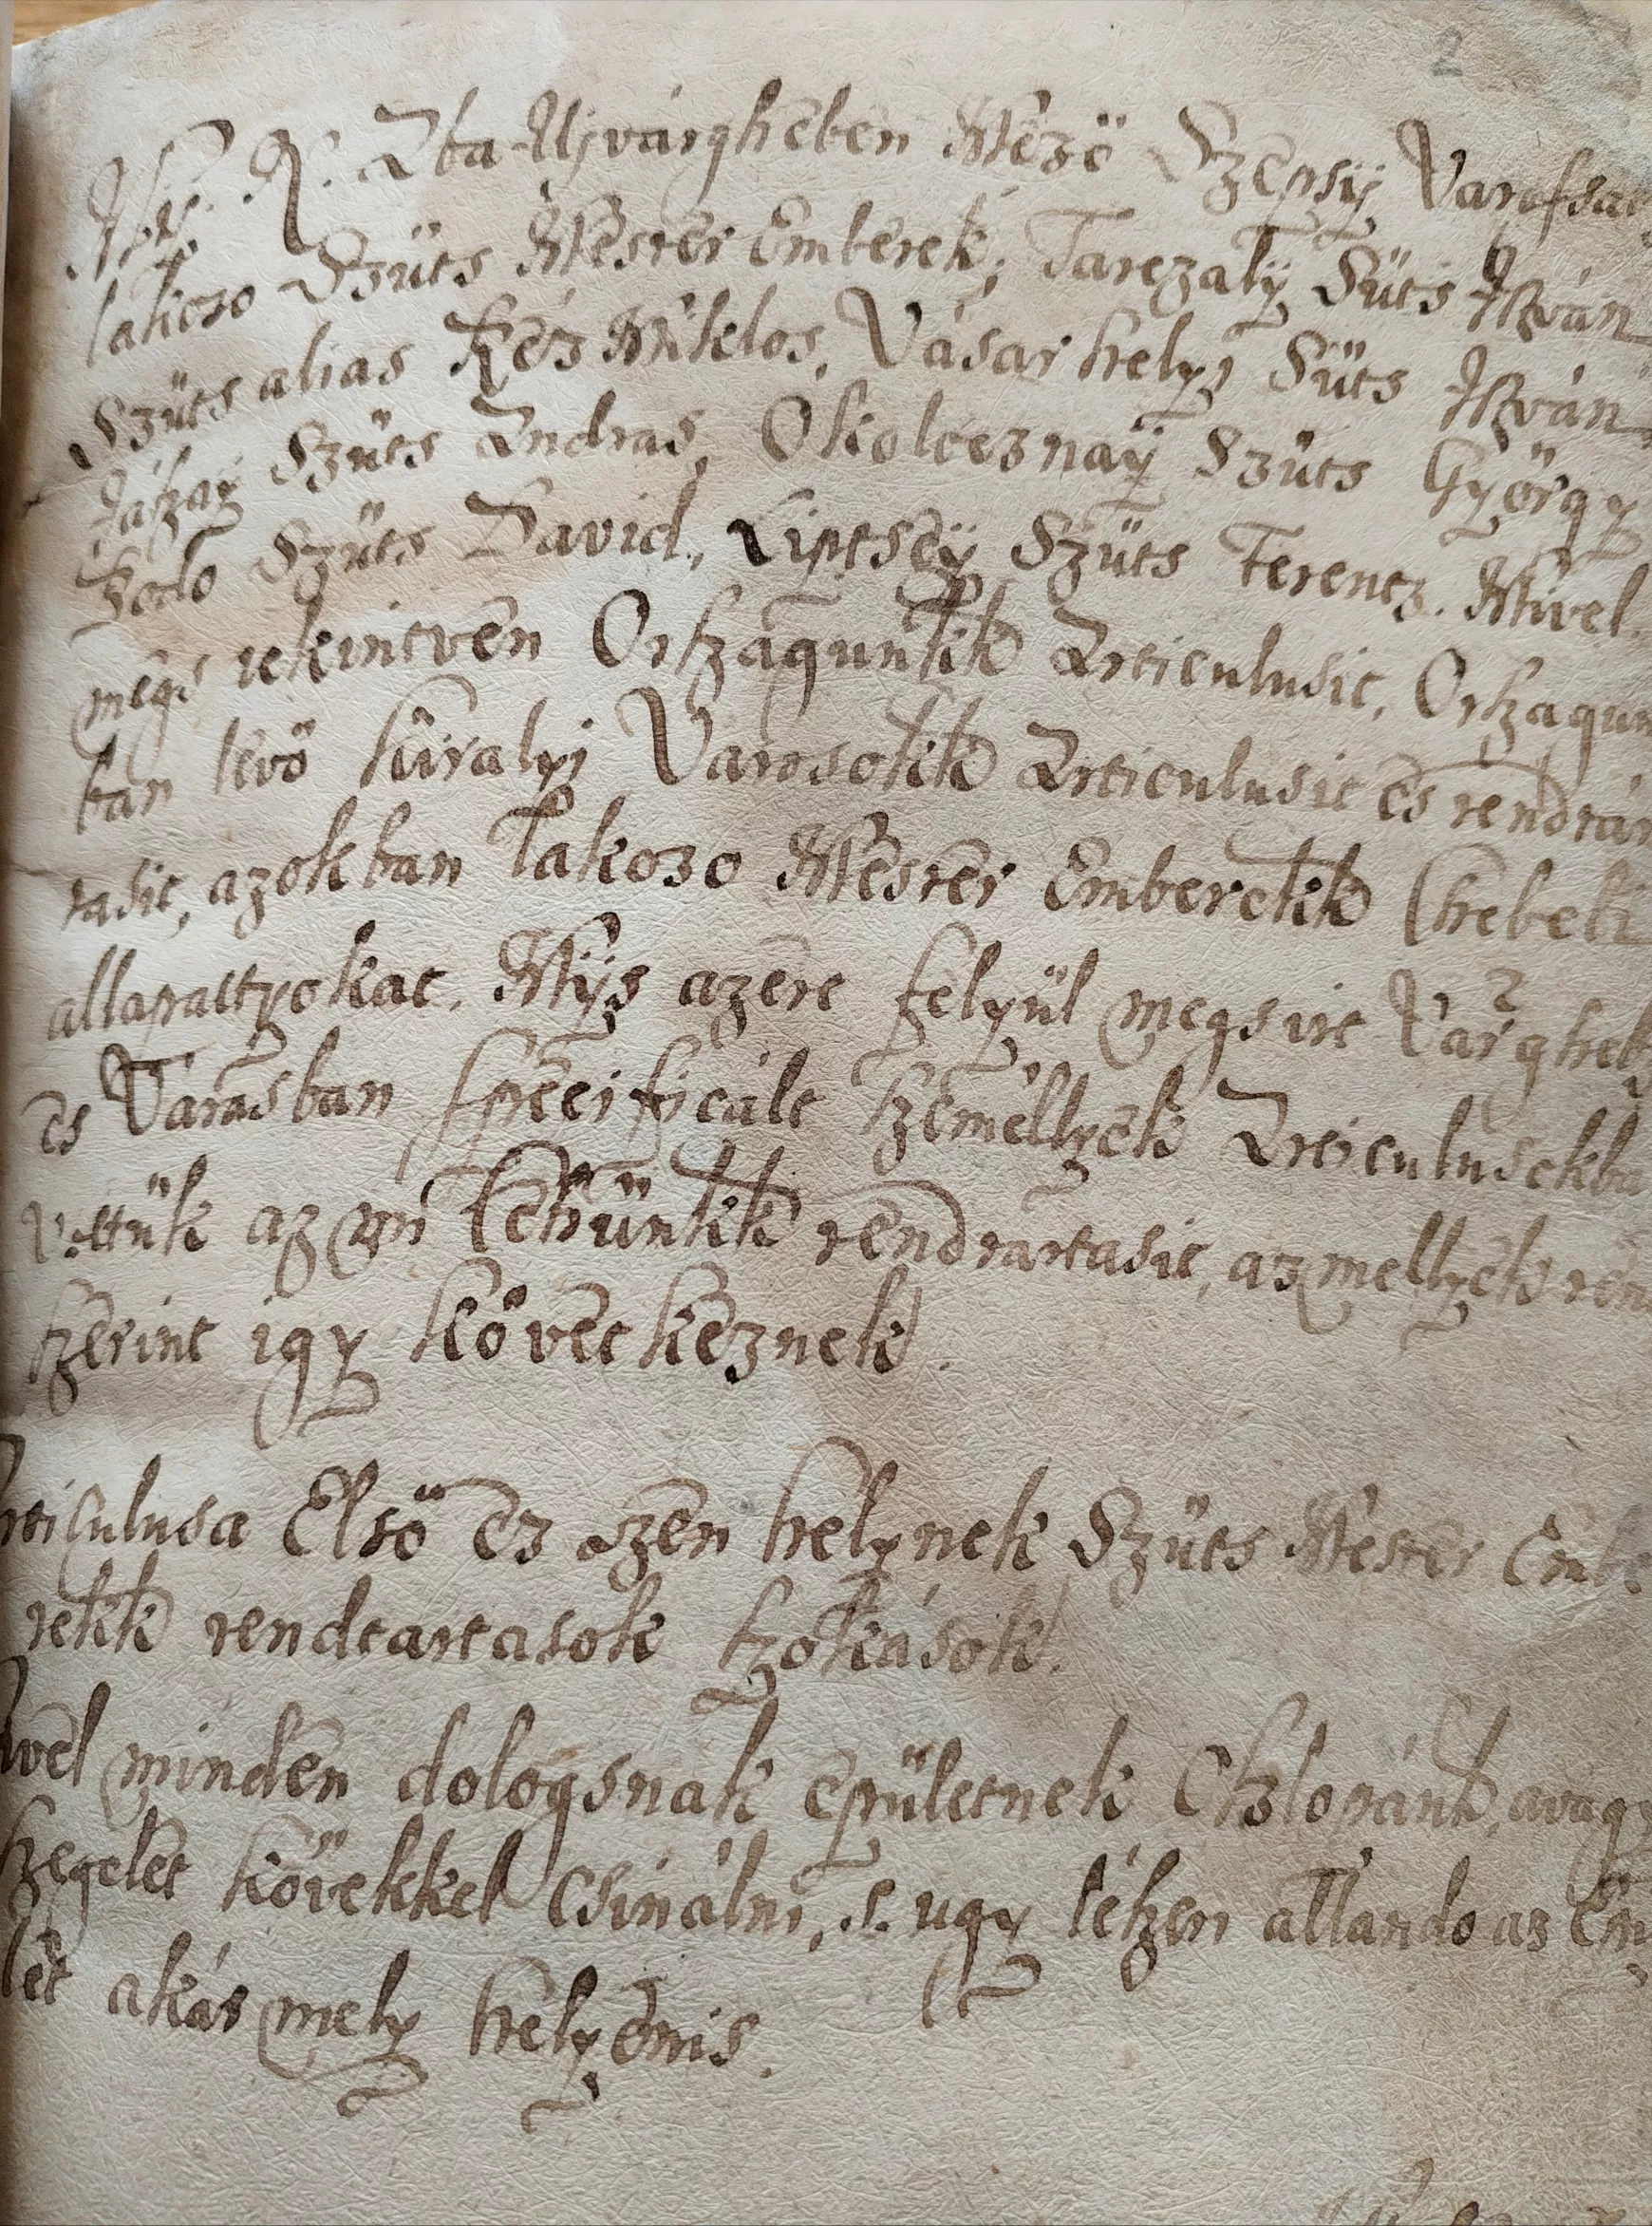 2
N. Aba-Ujvárgheben Mezö Szepsÿ Varassab
lakozo Szücs Mester Emberek, Tarczalÿ Sücs István
Szücs alias Kéz Miklos, Vásárhelyi Sücs István
Jászaÿ Szücs András, Okolceznaÿ Szücs György
Szücs David, Liptseÿ Szücs Ferencz. Mivel
megh tekintvén Orszagunkk Articulusit, Orszagun
ban lévö kiralyi Varasokk Articulusit és rendtar
tasit, azokban lakozo Mester Emberekk (hebeli
allapattyokat. Mÿs azért felyül megh irt Várgheb
és Varasban specificált személlyek Articulusokba
vöttük az mi Cehünkk rendtartasit, az mellyek ren
szerint igy következnek.
rticulusa Elsö ez szen helynek Szücs Mester Embe
rekk rendtartasok szokások.
ivel minden dologhnak épületnek Oszlopánk, avagy
szegelet kövekkel csinálni, s. ugy lészen állando az Ép
let akár mely helyenis.